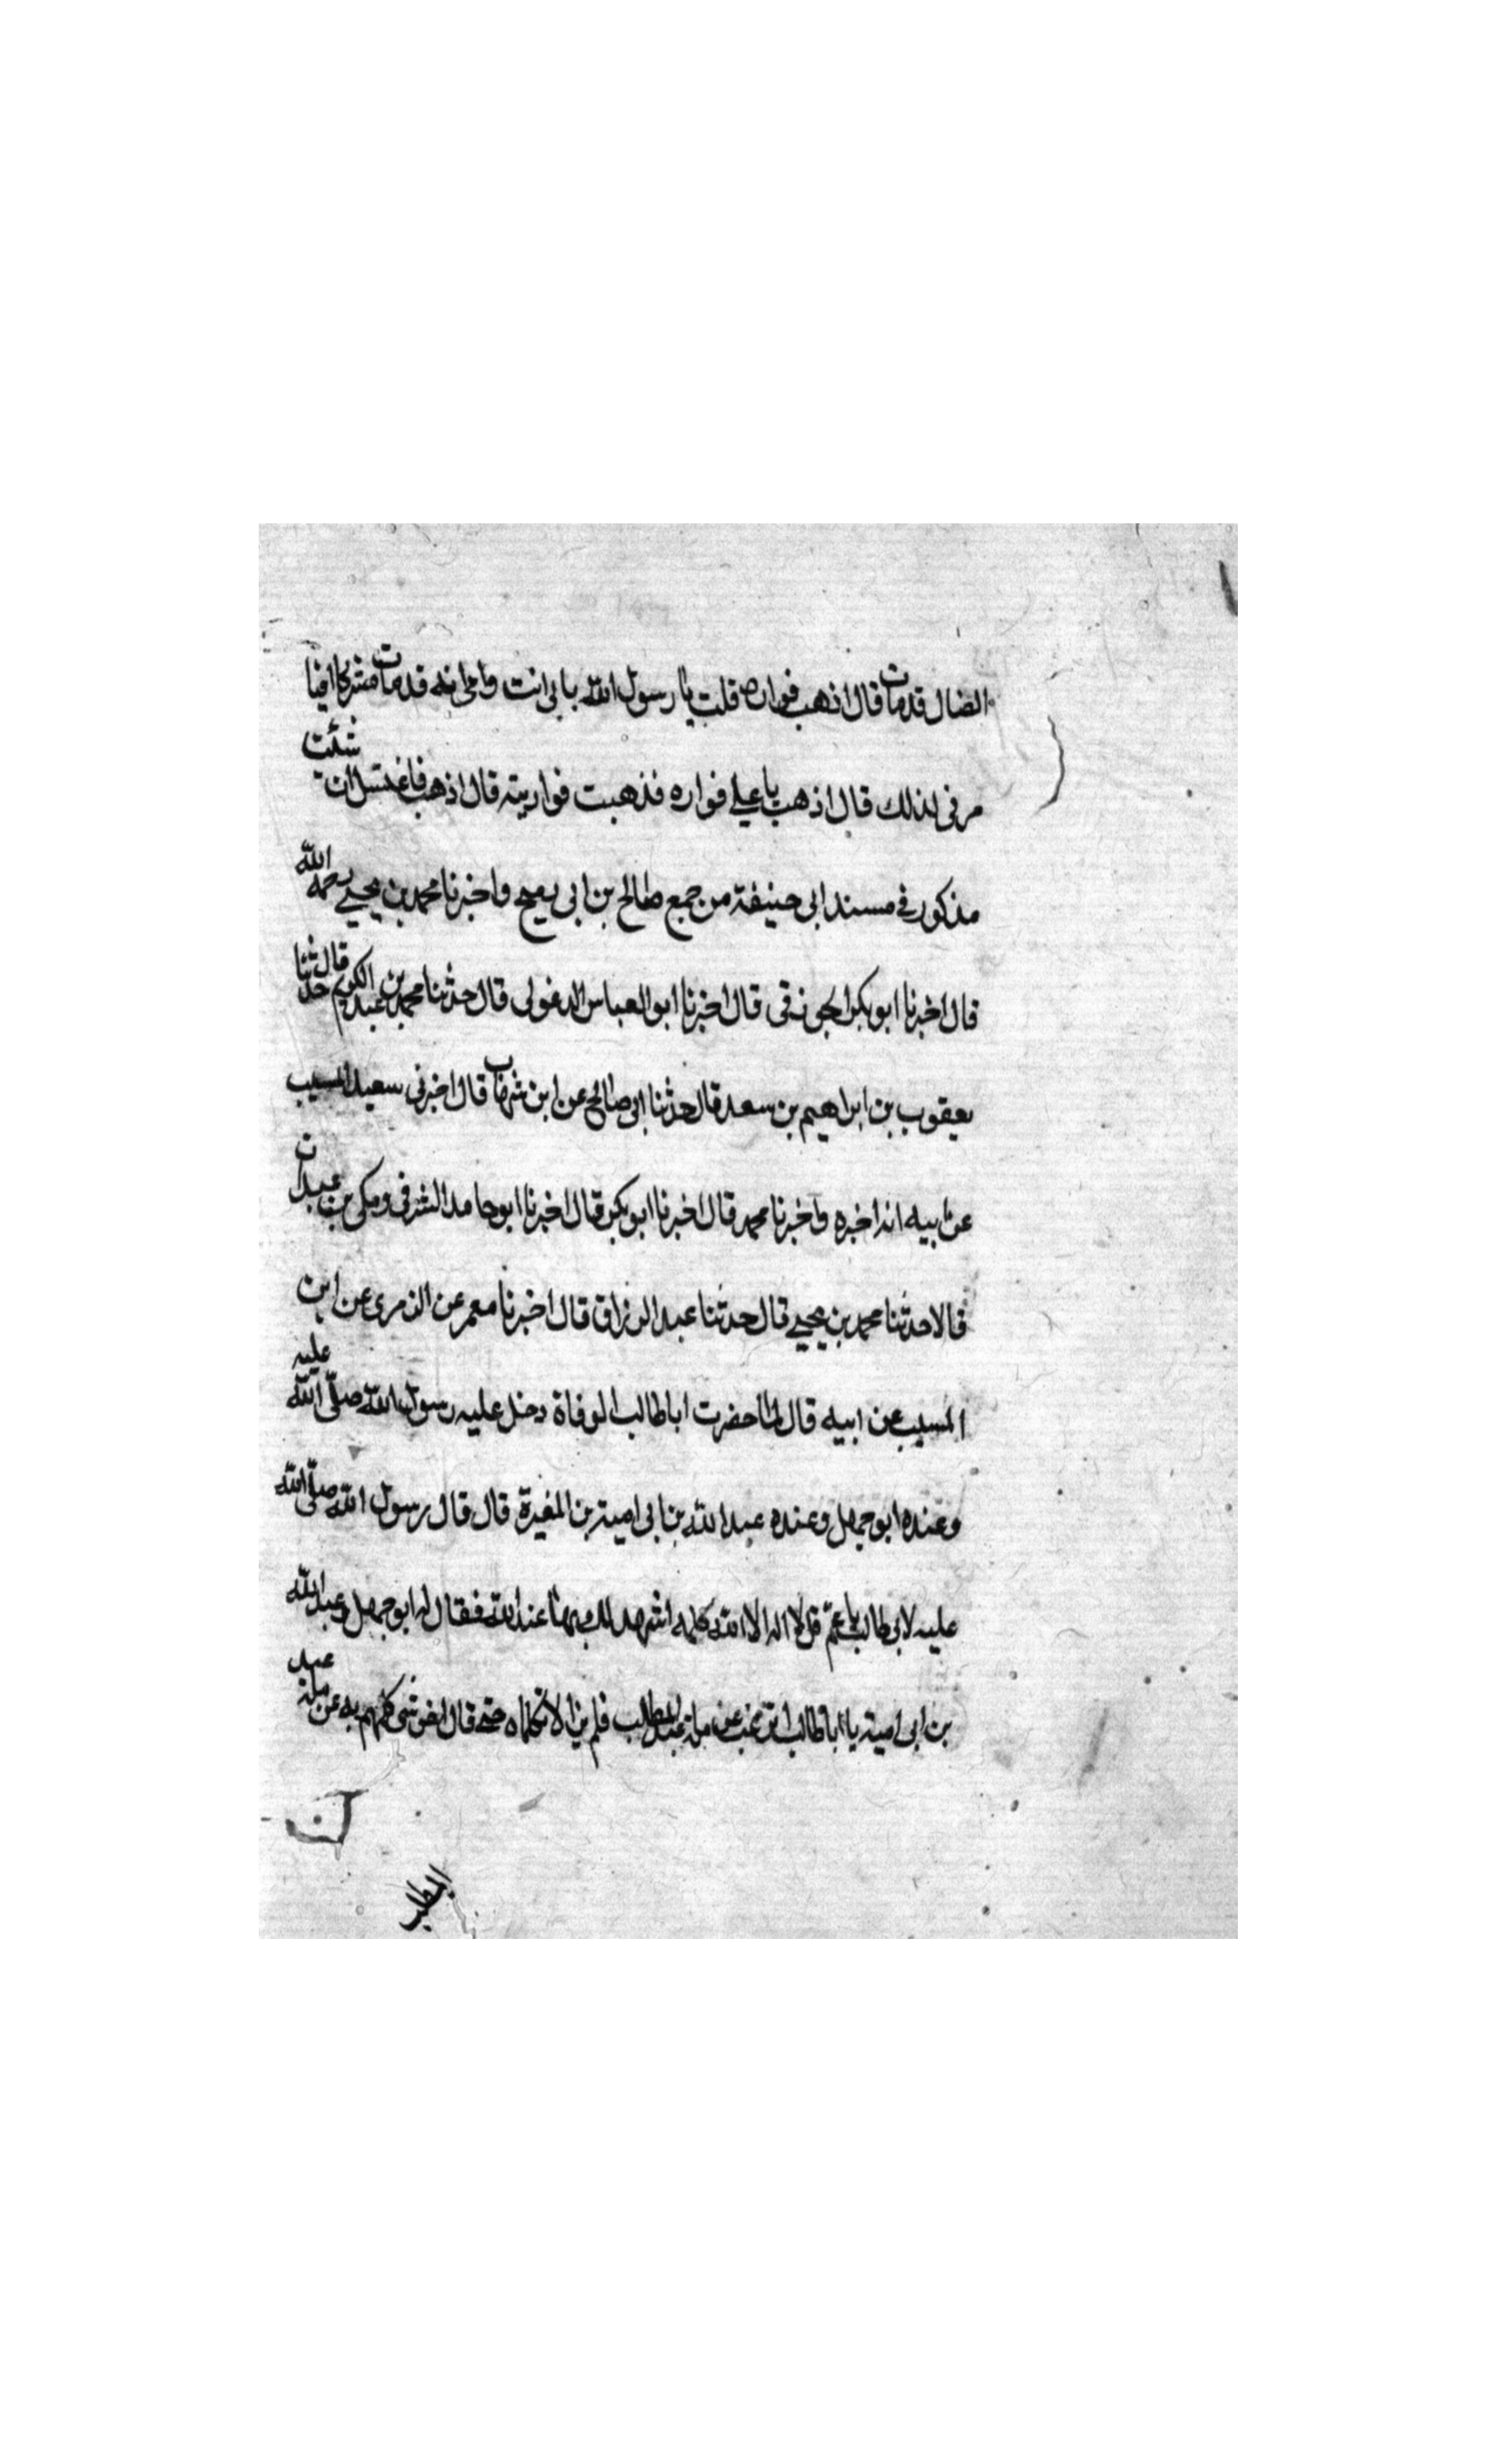 الضال قد مات قال اذهب فواره قلت يا رسول الله بابى انت وامى انه قد مات مشركا افنا
مرنى لذلك قال اذهب يا على فواره فذهبت فواريته قال اذهب فاغتسل ان شئت
مذكور فى مسند ابى حنيفة من جمع صالح بن ابى رميح واخبرنا محمد بن يحيى رحمه الله
قال اخبرنا ابو بكر الجوزقى قال اخبرنا ابو العباس الدغولى قال حدثنا محمد بن عبد الكريم قال ثنا
يعقوب بن ابراهيم بن سعد قال حدثنا ابى صالح عن ابن شهاب قال اخبرنى سعيد المسيب
عن ابيه انه اخبره واخبرنا محمد قال اخبرنا ابو بكر قال اخبرنا ابو حامد الشرقى ومكى بن عبدان
قالا حدثنا محمد بن يحيى قال حدثنا عبد الرزاق قال اخبرنا معمر عن الزهرى عن ابن
المسيب عن ابيه قال لما حضرت ابا طالب الوفاة دخل عليه رسول الله صلى الله عليه
وعنده ابو جهل وعنده عبد الله بن ابى امية بن المغيرة قال قال رسول الله صلى الله
عليه لابى طالب يا عم قل لا اله الا الله كلمه اشهد لك بها عند الله فقال له ابو جهل وعبد الله
بن ابى امية يا ابا طالب اترغب عن ملة عبد المطلب فلم يزالا تكلماه حتى قال اخر شى كلمهم به عن ملة عبد
المطلب